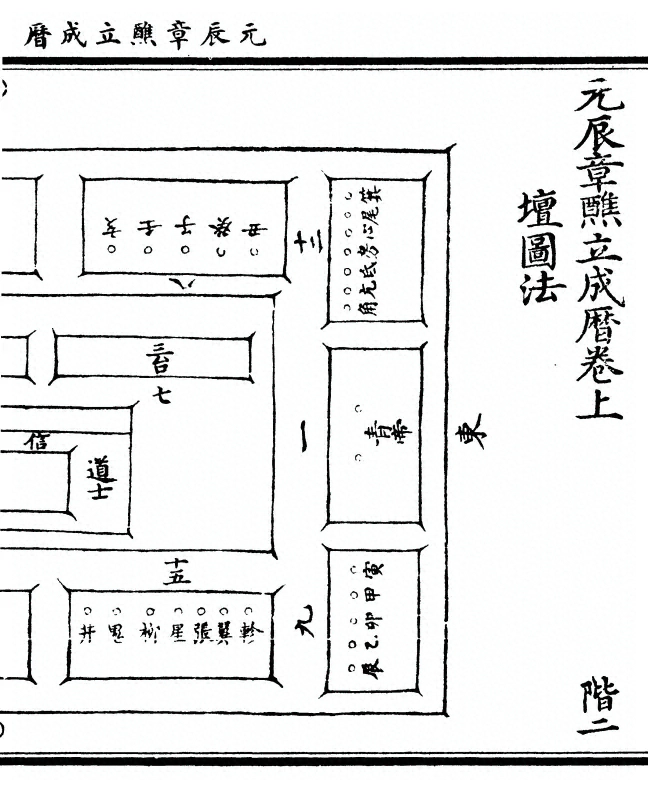 元辰章醮立成暦
元辰章醮立成暦卷上
壇圖法
階二
東
箕尾心房氐亢角
青帝
寅甲卯乙辰
一
九
丑癸子壬亥
八
三台
七
道士
信
十五
軫翼張星柳鬼井